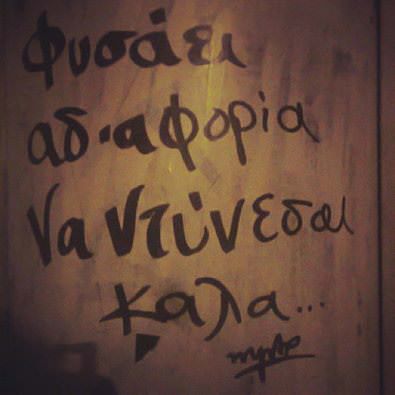 Φυσάει
αδιαφορία
Να ντύνεσαι
καλα...